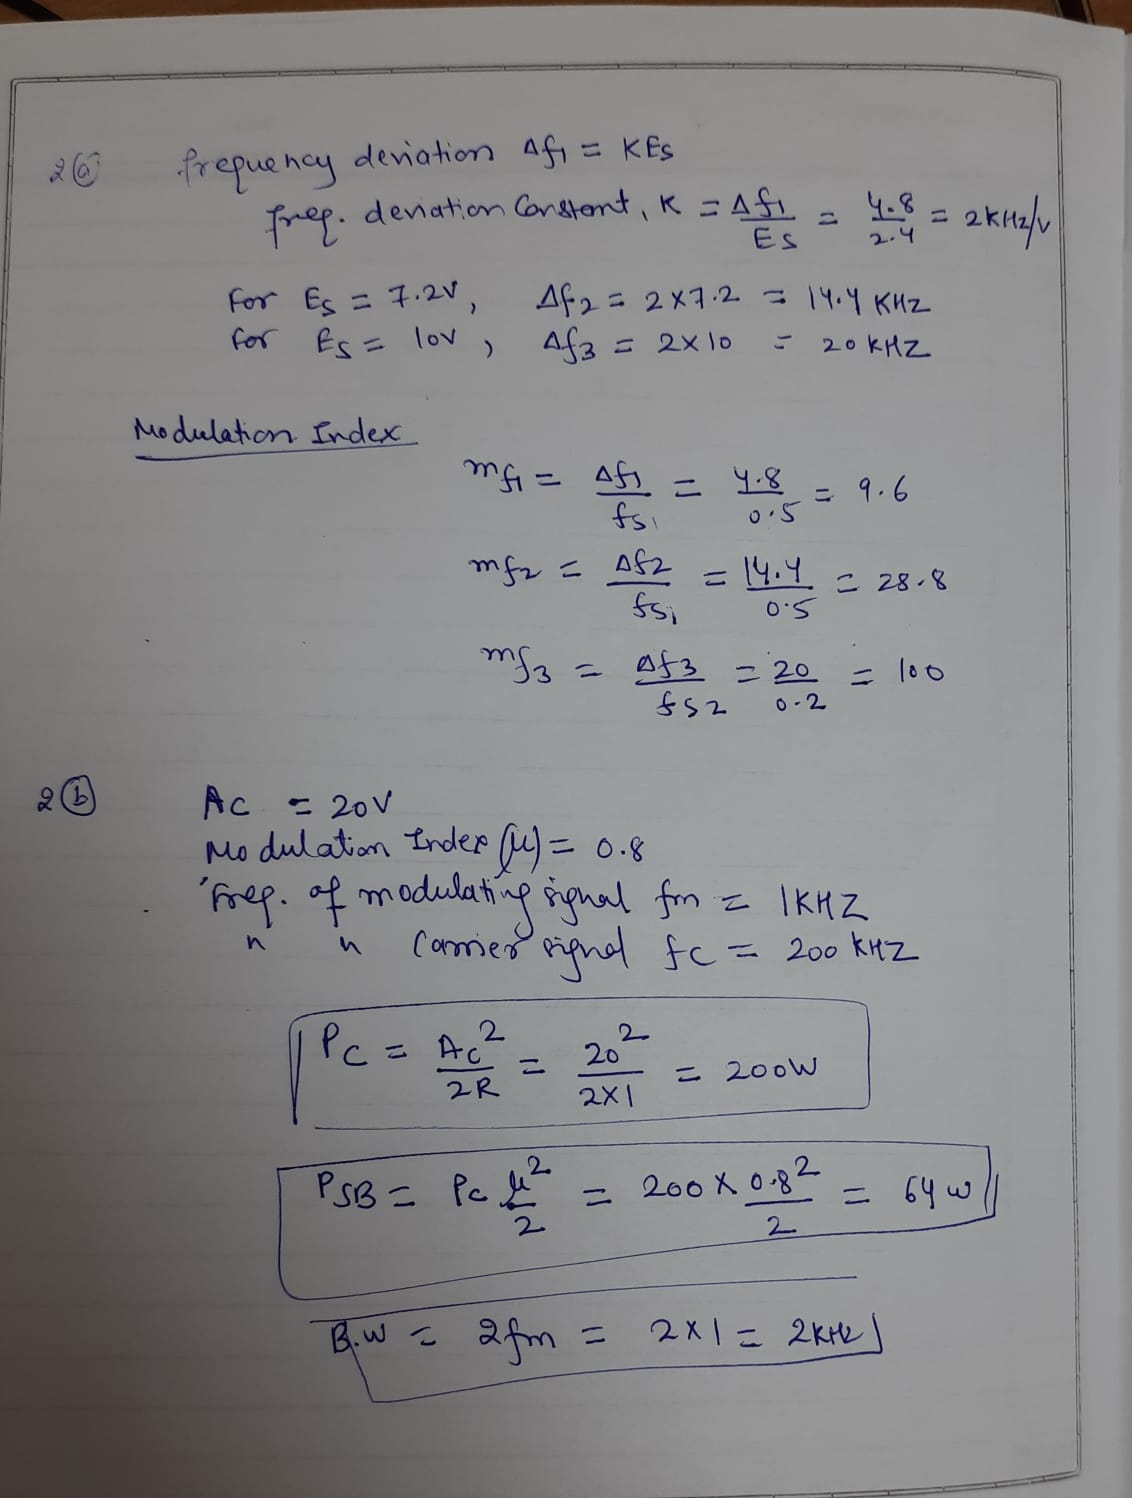 2(a) frequency deviation Δf1 = KEs
freq. deviation Constant, K = Δf1/Es = 4.8/2.4 = 2KHz/v
For Es = 7.2V, Δf2 = 2x7.2 = 14.4 KHZ
For Es = 10V, Δf3 = 2x10 = 20 KHZ
Modulation Index
mf1 = Δf1/fs1 = 4.8/0.5 = 9.6
mf2 = Δf2/fs1 = 14.4/0.5 = 28.8
mf3 = Δf3/fs2 = 20/0.2 = 100
2(b) Ac = 20V
Modulation Index (μ) = 0.8
Freq. of modulating signal fm = 1KHZ
" " Carrier signal fc = 200 KHZ
Pc = Ac²/2R = 20²/2x1 = 200W
PSB = Pc μ²/2 = 200 x 0.8²/2 = 64 W
B.W = 2fm = 2x1 = 2KHz